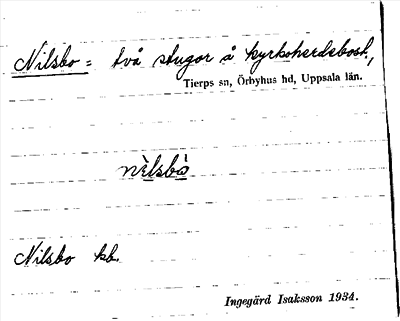 Nilsbo = två stugor å kyrkoherdebost.,
Tierps sn, Örbyhus hd, Uppsala län.
nìlsbò
Nilsbo kb.
Ingegärd Isaksson 1934.